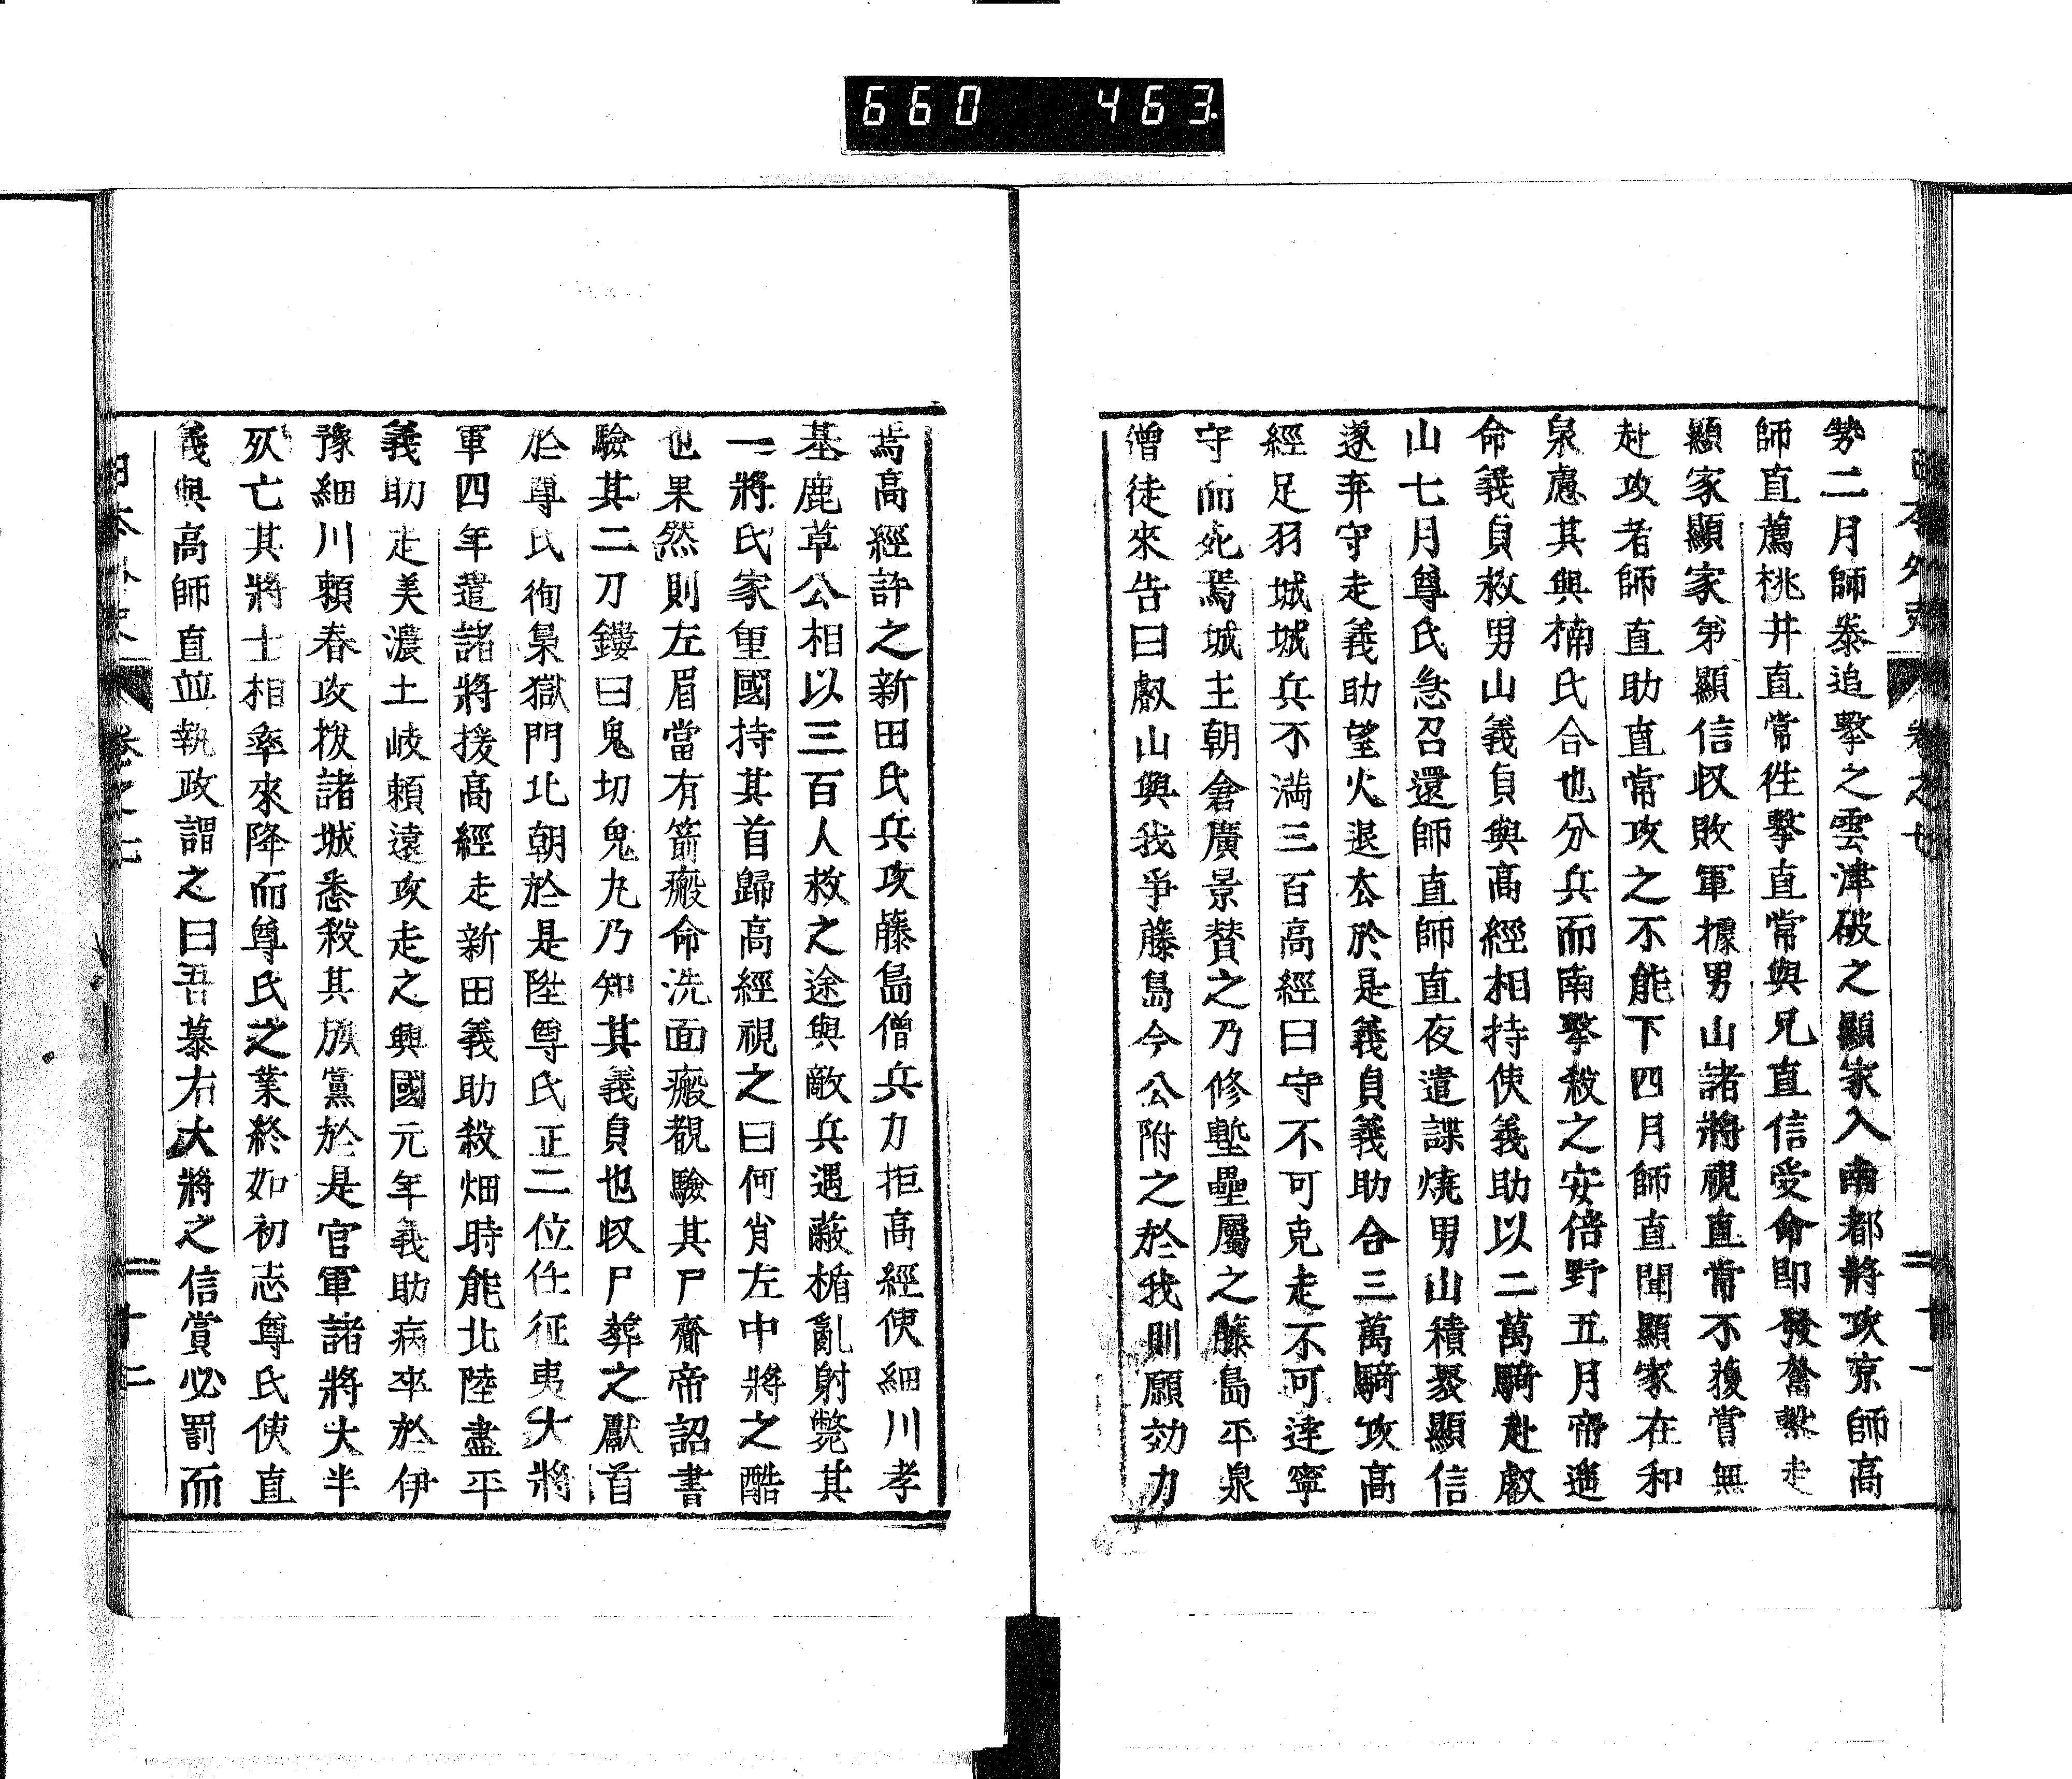 660 463
日本外史 卷之七 二十一
勢二月師泰追擊之雲津破之顯家入南都將攻京師高
師直薦桃井直常徃擊直常與兄直信受命即發奮擊走
顯家顯家第顯信収敗軍據男山諸將視直常不獲賞無
赴攻者師直助直常攻之不能下四月師直聞顯家在和
泉慮其與楠氏合也分兵而南擊殺之安倍野五月帝遥
命義貞救男山義貞與高經相持使義助以二萬騎赴叡
山七月尊氏急召還師直師直夜遣諜燒男山積聚顯信
遂弃守走義助望火退去於是義貞義助合三萬騎攻高
經足羽城城兵不滿三百高經曰守不可克走不可達寧
守而死焉城主朝倉廣景賛之乃修塹壘屬之藤島平泉
僧徒來告曰叡山與我爭藤島今公附之於我則願効力
焉高經許之新田氏兵攻藤島僧兵力拒高經使細川孝
基鹿草公相以三百人救之途與敵兵遇蔽楯亂射斃其
一將氏家重國持其首歸高經視之曰何肖左中將之酷
也果然則左眉當有箭瘢命洗面瘢覩驗其尸齎帝詔書
驗其二刀鏤曰鬼切鬼丸乃知其義貞也収尸葬之獻首
於尊氏徇梟獄門北朝於是陞尊氏正二位任征夷大將
軍四年遣諸將援高經走新田義助殺畑時能北陸盡平
義助走美濃土岐頼遠攻走之興國元年義助病卒於伊
豫細川頼春攻拔諸城悉殺其族黨於是官軍諸將大半
死亡其將士相率來降而尊氏之業終如初志尊氏使直
義與高師直並執政謂之曰吾慕右大將之信賞必罰而
日本外史 卷之七 二十二